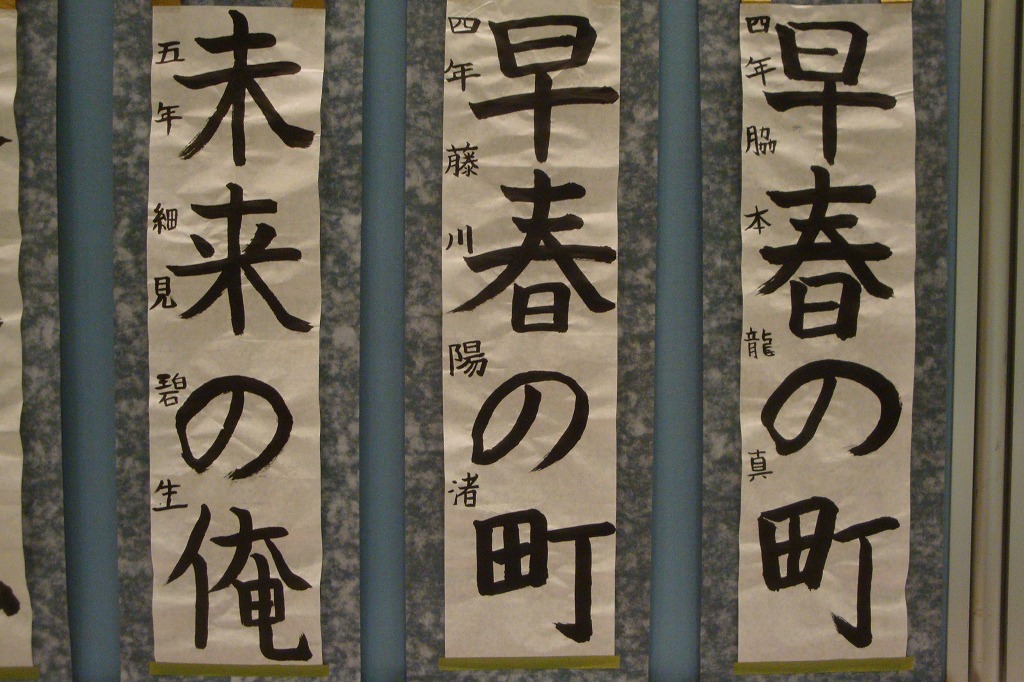 早春の町
四年 脇本 龍真
早春の町
四年 藤川 陽渚
未来の俺
五年 細見 碧生